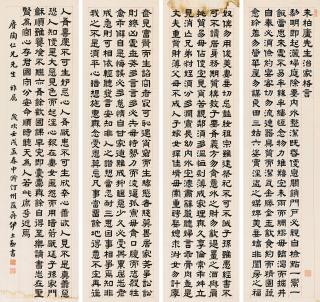 朱柏廬先生治家格言
黎明即起灑掃庭除要內外整潔既昏便息關鎖門戶必親自檢點一粥一
飯當思來處不易半絲半縷恒念物力維艱宜未雨而綢繆毋臨渴而掘井
自奉必須儉約宴客切勿留連器具質而潔瓦缶勝金玉飲食約而精園蔬
愈珍饈勿營華屋勿謀良田三姑六婆實淫盜之媒婢美妾嬌非閨房之福
奴僕勿用俊美妻妾切忌艷妝祖宗雖遠祭祀不可不誠子孫雖愚經書不
可不讀居身務期質樸教子要有義方勿貪意外之財勿飲過量之酒與肩
挑貿易毋占便宜見貧苦親鄰須多溫恤刻薄成家理無久享倫常乖舛立
見消亡兄弟叔姪須分多潤寡長幼內外宜法肅辭嚴聽婦言乖骨肉豈是
丈夫重貲財薄父母不成人子嫁女擇佳婿毋索重聘娶媳求淑女勿計厚
奩見富貴而生諂容者最可恥遇貧窮而作驕態者賤莫甚居家戒爭訟訟
則終凶處世戒多言言多必失毋恃勢力而凌逼孤寡毋貪口腹而恣殺牲
禽乖僻自是悔誤必多頹惰自甘家道難成狎暱惡少久必受其累屈志老
成急則可相依輕聽發言安知非人之譖愬當忍耐三思因事相爭焉知非
我之不是須平心暗想施惠無念受恩莫忘凡事當留餘地得意不宜再往
人有喜慶不可生妒忌心人有禍患不可生欣幸心善欲人見不是真善惡
恐人知便是大惡見色而起淫心報在妻女匿怨而用暗箭禍延子孫家門
和順雖饔飧不繼亦有餘歡國課早完即囊橐無餘自得至樂讀書志在聖
賢為官心存君國守分安命順時聽天為人若此庶乎近焉